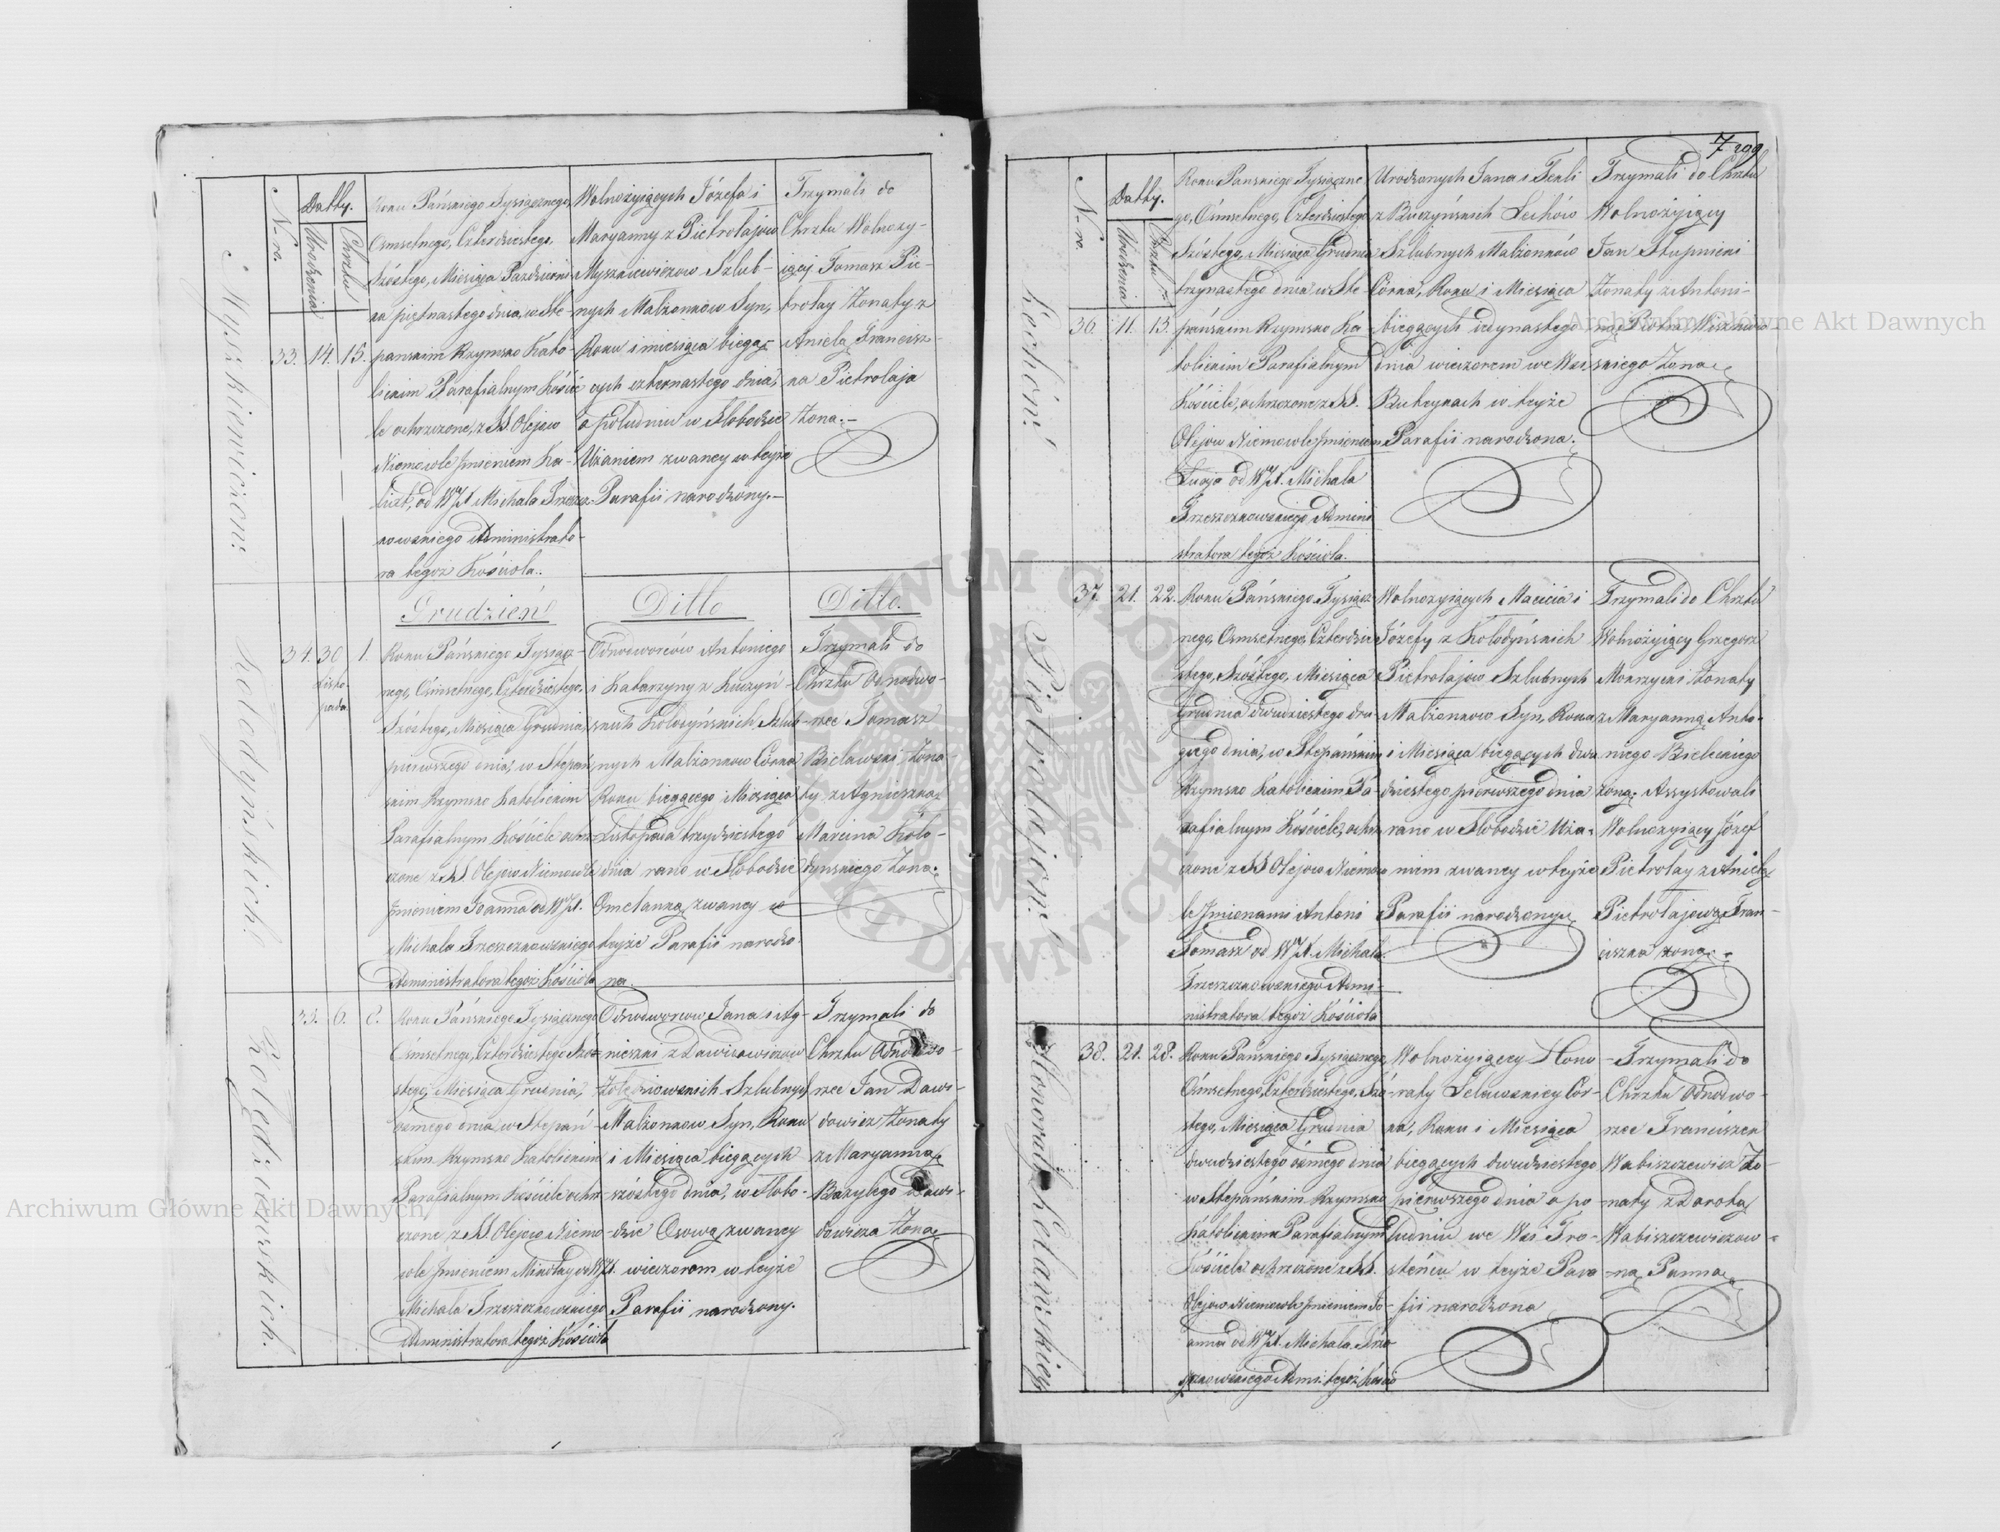 Myszkiewiczow.
N-ro.
Datty.
Urodzenia
Chrztu
33. 14. 15.
Roku Pańskiego Tysiącznego,
Ośmsetnego, Czterdziestego,
Szóstego, Miesiąca Październi-
ka piętnastego dnia, w Ste-
pańskim Rzymsko Kato-
lickim Parafialnym Kości-
le ochrzczone, z SS. Olejow
Niemowle Jmieniem Ka-
lixt, od WJX. Michała Trzeszcz-
kowskiego Administrato-
ra tegoż Kościoła.
Wolnożyjących Józefa i
Maryanny z Pietrołajow
Myszkiewiczow Szlub-
nych Małżonkow Syn,
Roku i miesiąca biegą-
cych czternastego dnia,
o południu w Słobodzie
Użaniem zwaney w teyże
Parafii narodzony.
Trzymali do
Chrztu Wolnoży-
iący Tomasz Pie-
trołay żonaty z
Anielą Francisz-
ka Pietrołaja
żoną.
Grudzień
Ditto
Ditto.
Kołodyńskich.
34. 30 1.
listo-
pada
Roku Pańskiego Tysiącz-
nego, Ośmsetnego, Czterdziestego,
Szóstego, Miesiąca Grudnia,
pierwszego dnia, w Stepań-
skim Rzymsko Katolickim
Parafialnym Kościele ochrz-
czone z SS. Olejow Niemowle
Jmieniem Joanna od WJX.
Michała Trzeszczkowskiego
Administratora tegoż Kościoła
Odnodworców Antoniego
i Katarzyny z Kuczyń-
skich Kołodyńskich Szlub-
nych Małżonkow Córka
Roku biegącego i Miesiąca
Listopada trzydziestego
dnia rano w Słobodzie
Omelanką zwaney w
teyże Parafii narodzo-
na.
Trzymali do
Chrztu Odnodwo-
rzec Tomasz
Bielawski żona-
ty z Agnieszką
Marcina Koło-
dyńskiego żoną.
35. 6. 8.
Roku Pańskiego Tysiącznego
Ośmsetnego, Czterdziestego Szó-
stego, Miesiąca Grudnia,
osmego dnia, w Stepań-
skim Rzymsko Katolickim
Parafialnym Kościele ochrz-
czone, z SS. Olejow Niemo-
wle Jmieniem Mikołay od WJX.
Michała Trzeszczkowskiego
Administratora tegoż Kościoła
Odnodworcow Jana i Ag-
nieszki z Dawidowiczow
Szlubnych
Małżonkow Syn, Roku
i Miesiąca biegących
szóstego dnia, w Słobo-
dzie Osową zwaney
wieczorem w teyże
Parafii narodzony.
Trzymali do
Chrztu Odnodwo-
rzec Jan Dawi-
dowicz żonaty
z Maryanną
Bazylego Dawi-
dowicza żoną
7
299
Lechów.
N-ro.
Datty.
Urodzenia
Chrztu
36. 11. 13.
Roku Pańskiego Tysiączne-
go, Ośmsetnego, Czterdziestego
Szóstego, Miesiąca Grudnia
trzynastego dnia w Ste-
pańskim Rzymsko Ka-
tolickim Parafialnym
Kościele, ochrzczone, z SS.
Olejow Niemowle Jmieniem
Łucja od WJX. Michała
Trzeszczkowskiego Admini-
stratora tegoż Kościoła.
Urodzonych Jana i Tekli
z Buczyńskich Lechów
Szlubnych Małżonków
Córka, Roku i Miesiąca
biegących iedynastego
dnia wieczorem we Wsi
Buteykach w teyże
Parafii narodzona.
Trzymali do Chrztu
Wolnożyjący
Jan Słupnicki
żonaty z Antoni-
ną Piotra
skiego żoną
Pietrołajow.
37. 21. 22.
Roku Pańskiego Tysiącz-
nego, Ośmsetnego, Czterdzie-
stego, Szóstego, Miesiąca
Grudnia dwudziestego dru-
giego dnia, w Stepańskim
Rzymsko Katolickim Pa-
rafialnym Kościele, ochrz-
czone z SS Olejow Niemow-
le Jmionami Antoni
Tomasz od WJX. Michała
Trzeszczkowskiego Admi-
nistratora tegoż Kościoła
Wolnożyjących Macieia i
Józefy z Kołodyńskich
Pietrołajow Szlubnych
Małżonkow Syn, Roku
i Miesiąca biegących dwu-
dziestego pierwszego dnia
rano w Słobodzie Uża-
niem zwaney w teyże
Parafii narodzony
Trzymali do Chrztu
Wolnożyjący Grzegorz
Mokrzycki żonaty
z Maryanną Anto-
niego Bielickiego
żoną; Assystowali
Wolnożyjący Józef
Pietrołay z Anielą
Pietrołajową Fran-
ciszka żoną
Honoraty Lelawskiey
38. 21. 28.
Roku Pańskiego Tysiącznego,
Ośmsetnego, Czterdziestego, Szó-
stego, Miesiąca Grudnia
dwudziestego osmego dnia
w Stepańskim Rzymsko
Katolickim Parafialnym
Kościele ochrzczone z SS.
Olejow Niemowle Jmieniem Jo-
anna od WJX. Michała Trze-
szczkowskiego Admi: tegoż Kościo
Wolnożyjącey Hono-
raty Lelawskiey Cór-
ka, Roku i Miesiąca
biegących dwudziestego
pierwszego dnia o po-
łudniu we Wsi Tro-
ścieńcu w teyże Para-
fii narodzona
Trzymali do
Chrztu Odnodwo-
rzec Franciszek
Wabiszczewicz żo-
naty z Dorotą
Wabiszczewiczow-
ną Panną
Archiwum Główne Akt Dawnych
Archiwum Główne Akt Dawnych
ARCHIWUM GŁÓWNE AKT DAWNYCH